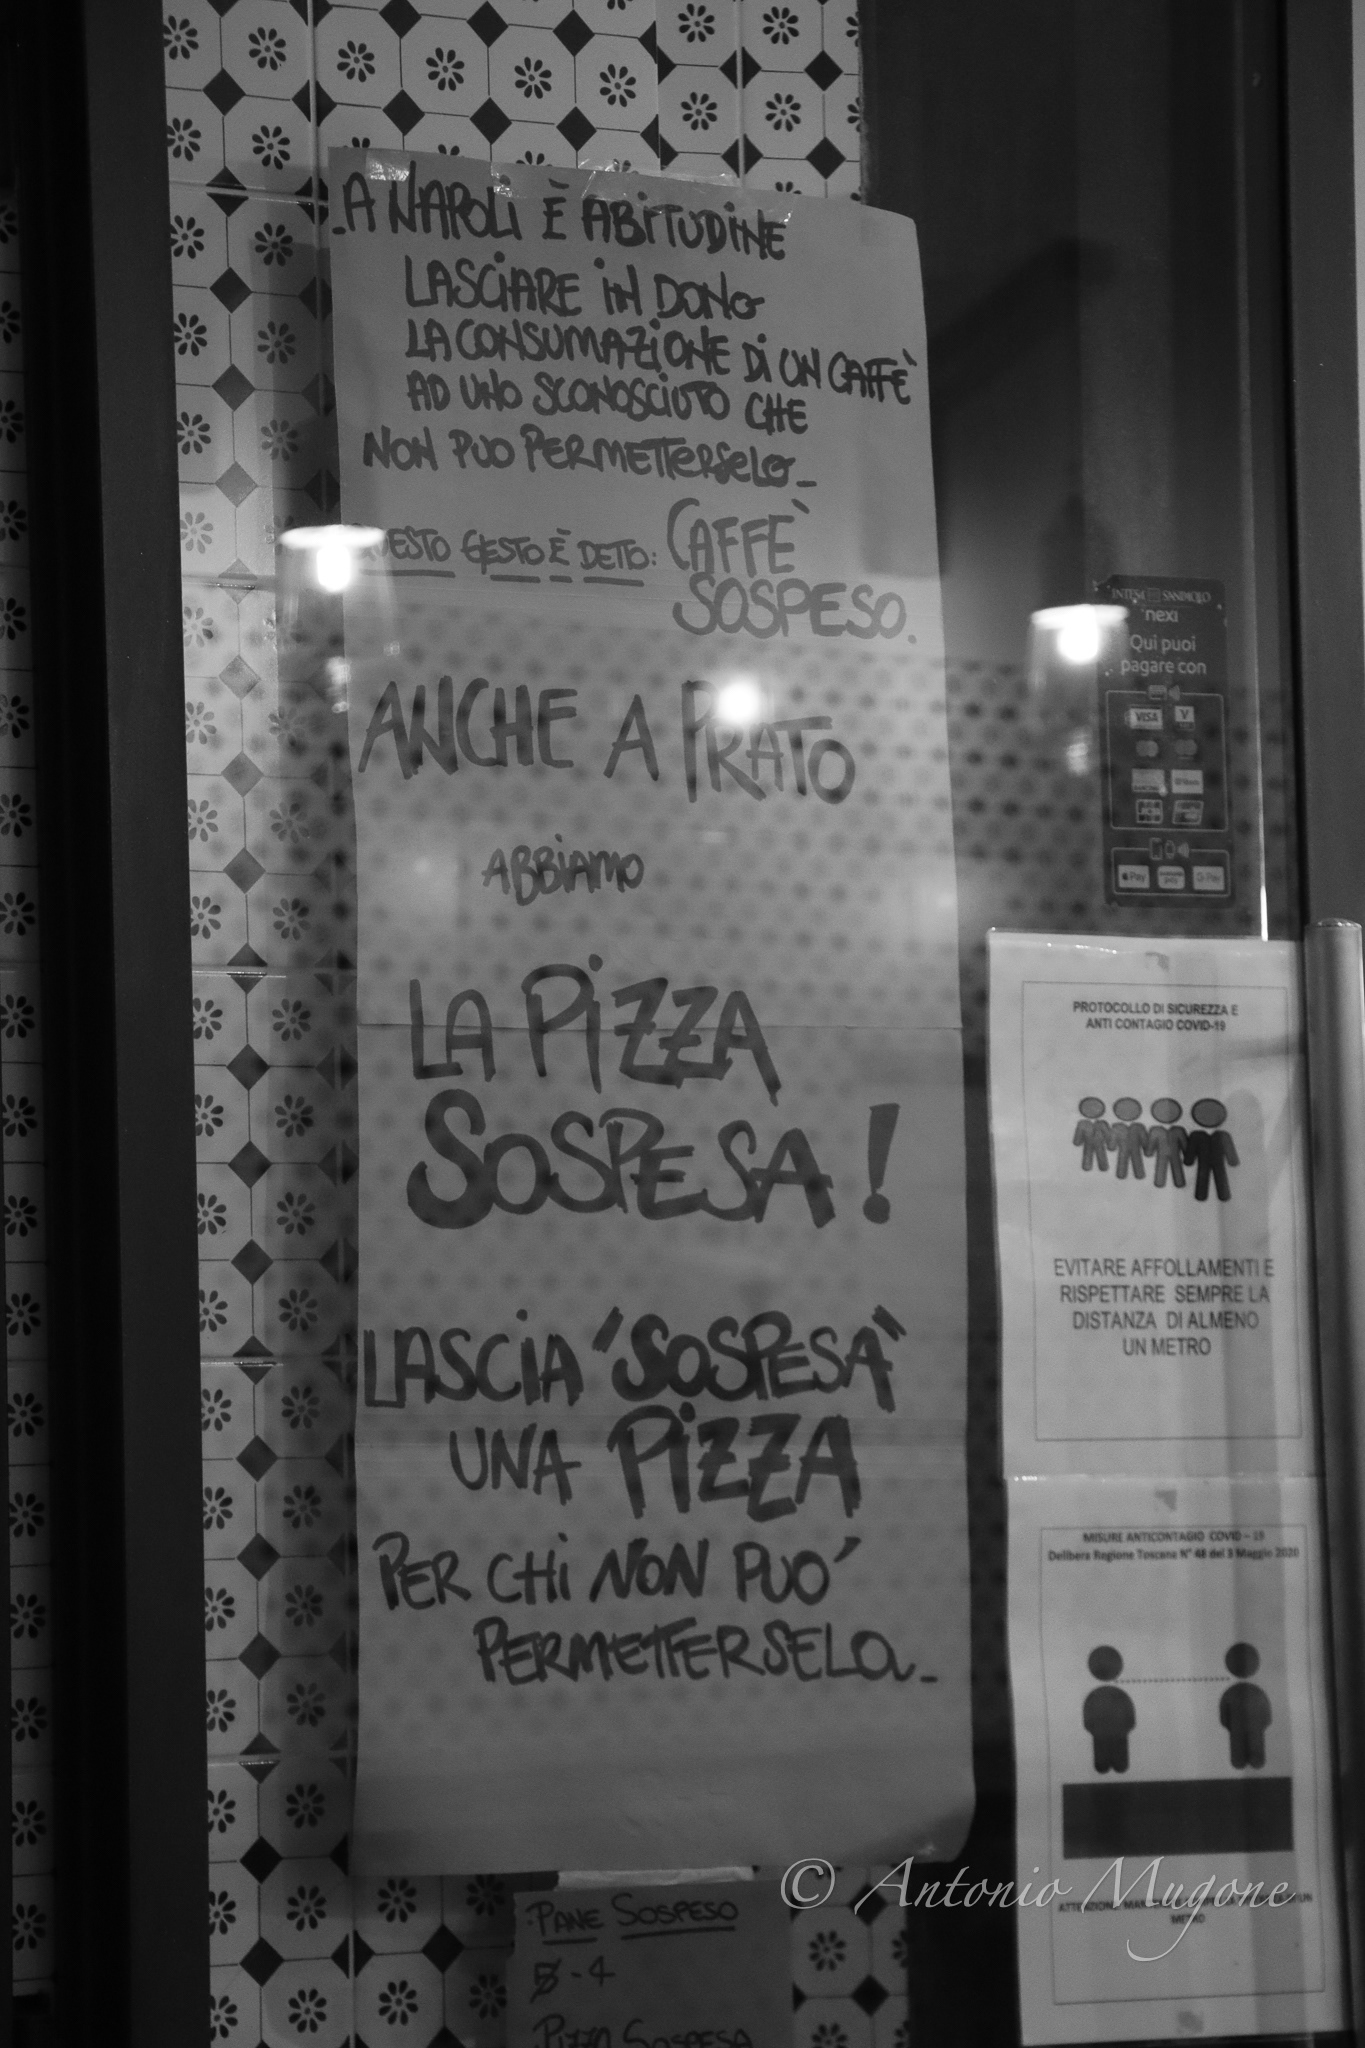 A NAPOLI È ABITUDINE
LASCIARE IN DONO
LA CONSUMAZIONE DI UN CAFFÈ
AD UNO SCONOSCIUTO CHE
NON PUO PERMETTERSELO_
QUESTO GESTO È DETTO: CAFFÈ
SOSPESO.
ANCHE A PRATO
ABBIAMO
LA PIZZA
SOSPESA!
LASCIA "SOSPESA"
UNA PIZZA
PER CHI NON PUO'
PERMETTERSELA_
PANE SOSPESO
5 - 4
PIZZA SOSPESA
INTESA SANPAOLO
nexi
Qui puoi
pagare con
VISA
V
Pay
G Pay
PROTOCOLLO DI SICUREZZA E
ANTI CONTAGIO COVID-19
EVITARE AFFOLLAMENTI E
RISPETTARE SEMPRE LA
DISTANZA DI ALMENO
UN METRO
MISURE ANTICONTAGIO COVID – 19
Delibera Regione Toscana N° 48 del 3 Maggio 2020
METRO
© Antonio Mugone